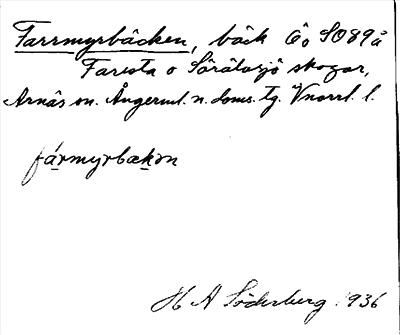 Farrmyrbäcken, bäck Öo SO89 å
Farsta o Sörätasjö skogar,
Arnäs sn. Ångerml. n. doms. tg. Vnorrl. l.
fármyrbækən
H A Söderberg 1936